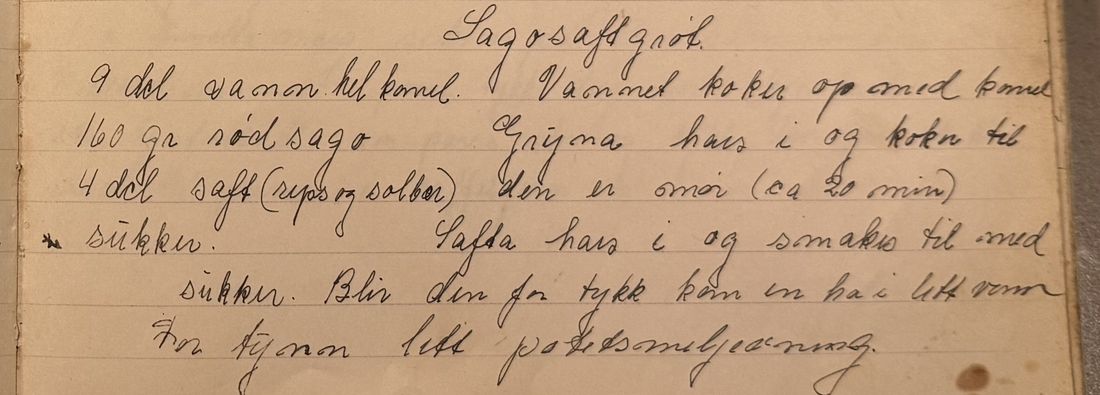 Sagosaftgrøt.
9 dcl vann. hel kanel. Vannet koker op med kanel
160 gr rød sago Gryna haes i og koker til
4 dcl saft (rips og solbær) den er mør (ca 20 min)
sukker. Safta haes i og smakes til med
sukker. Blir den for tykk kan en ha i litt vann
For tynn litt potetsmeljevning.